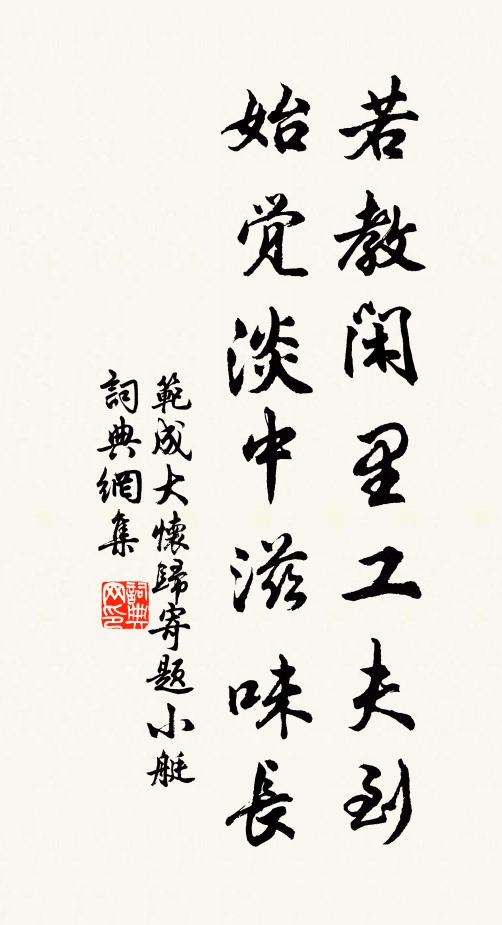 若教閑里工夫到
始覺淡中滋味長
範成大懷歸寄題小艇
詞典網集
詞典网印